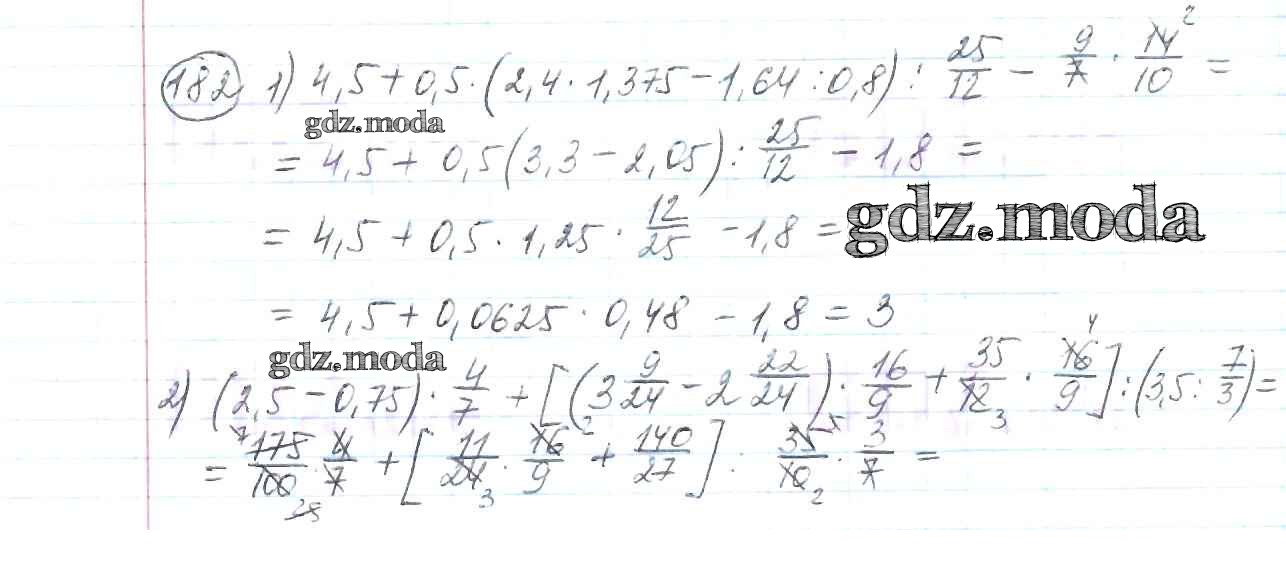 182 1) 4,5 + 0,5 · (2,4 · 1,375 − 1,64 : 0,8) : 25/12 − 9/7 · 14/10 2 =
gdz.moda
= 4,5 + 0,5 (3,3 − 2,05) : 25/12 − 1,8 =
= 4,5 + 0,5 · 1,25 · 12/25 − 1,8 =
gdz.moda
= 4,5 + 0,0625 · 0,48 − 1,8 = 3
gdz.moda
2) (2,5 − 0,75) · 4/7 + [(3 9/24 − 2 22/24) · 16/9 + 35/12 3 · 16 4/9] : (3,5 : 7/3) =
= 7 175/100 25 · 4/7 + [11/24 3 · 16 2/9 + 140/27] : 35 5/10 2 · 3/7 =